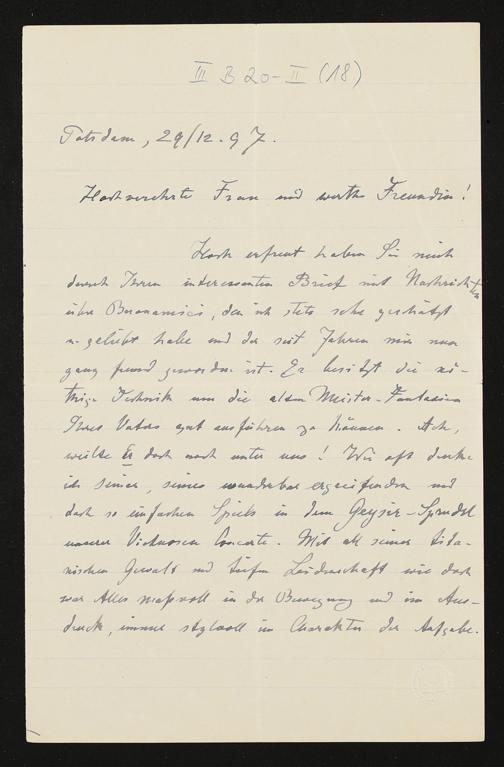 III B 20-II (18)
Potsdam, 29/12.97.
Hochverehrte Frau und werthe Freundin!
Hoch erfreut haben Sie mich
durch Ihren interessanten Brief mit Nachrichten
über Buonamici, den ich stets sehr geschätzt
u. geliebt habe und der seit Jahren mir nun
ganz fremd geworden ist. Er besitzt die nö-
thige Technik um die alten Meister-Fantasien
Ihres Vaters gut ausführen zu können. Ach,
weilte Er doch noch unter uns! Wie oft denke
ich seiner, seines wunderbar ergreifenden und
doch so einfachen Spiels in dem Geyser-Sprudel
unserer Virtuosen Concerte. Mit all seiner tita-
nischen Gewalt und tiefen Leidenschaft wie doch
war Alles maßvoll in der Bewegung und im Aus-
druck, immer stylvoll im Charakter der Aufgabe.